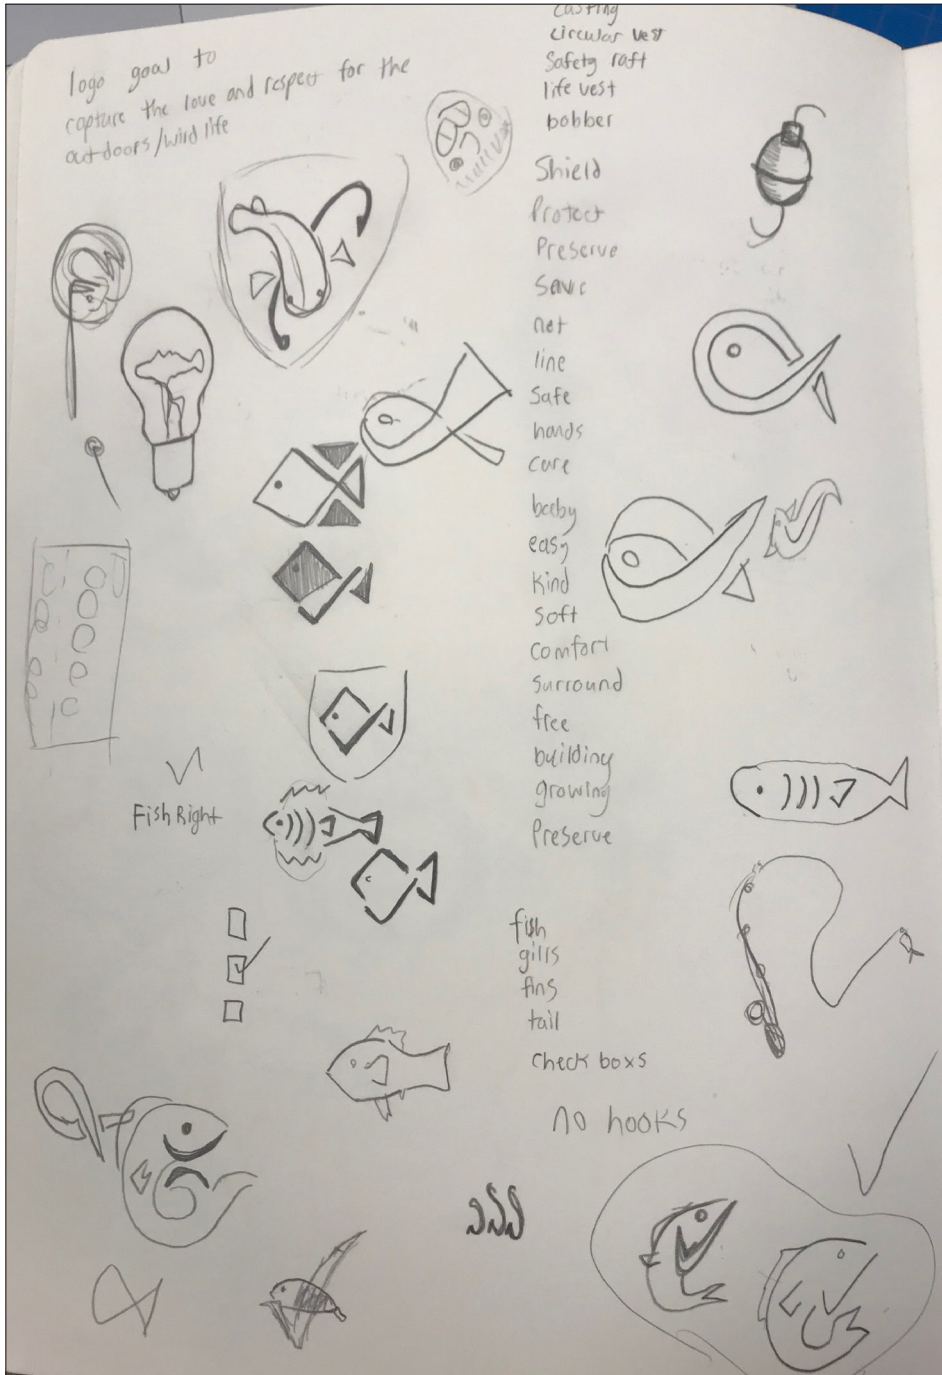 logo goal to
capture the love and respect for the
outdoors/wird life
casting
circular vest
Safety raft
life vest
bobber
Shield
Protect
Preserve
Save
net
line
Safe
hands
care
baby
easy
Kind
Soft
comfort
surround
free
building
growing
Preserve
Fish Right
fish
gills
fins
tail
check boxs
no hooks